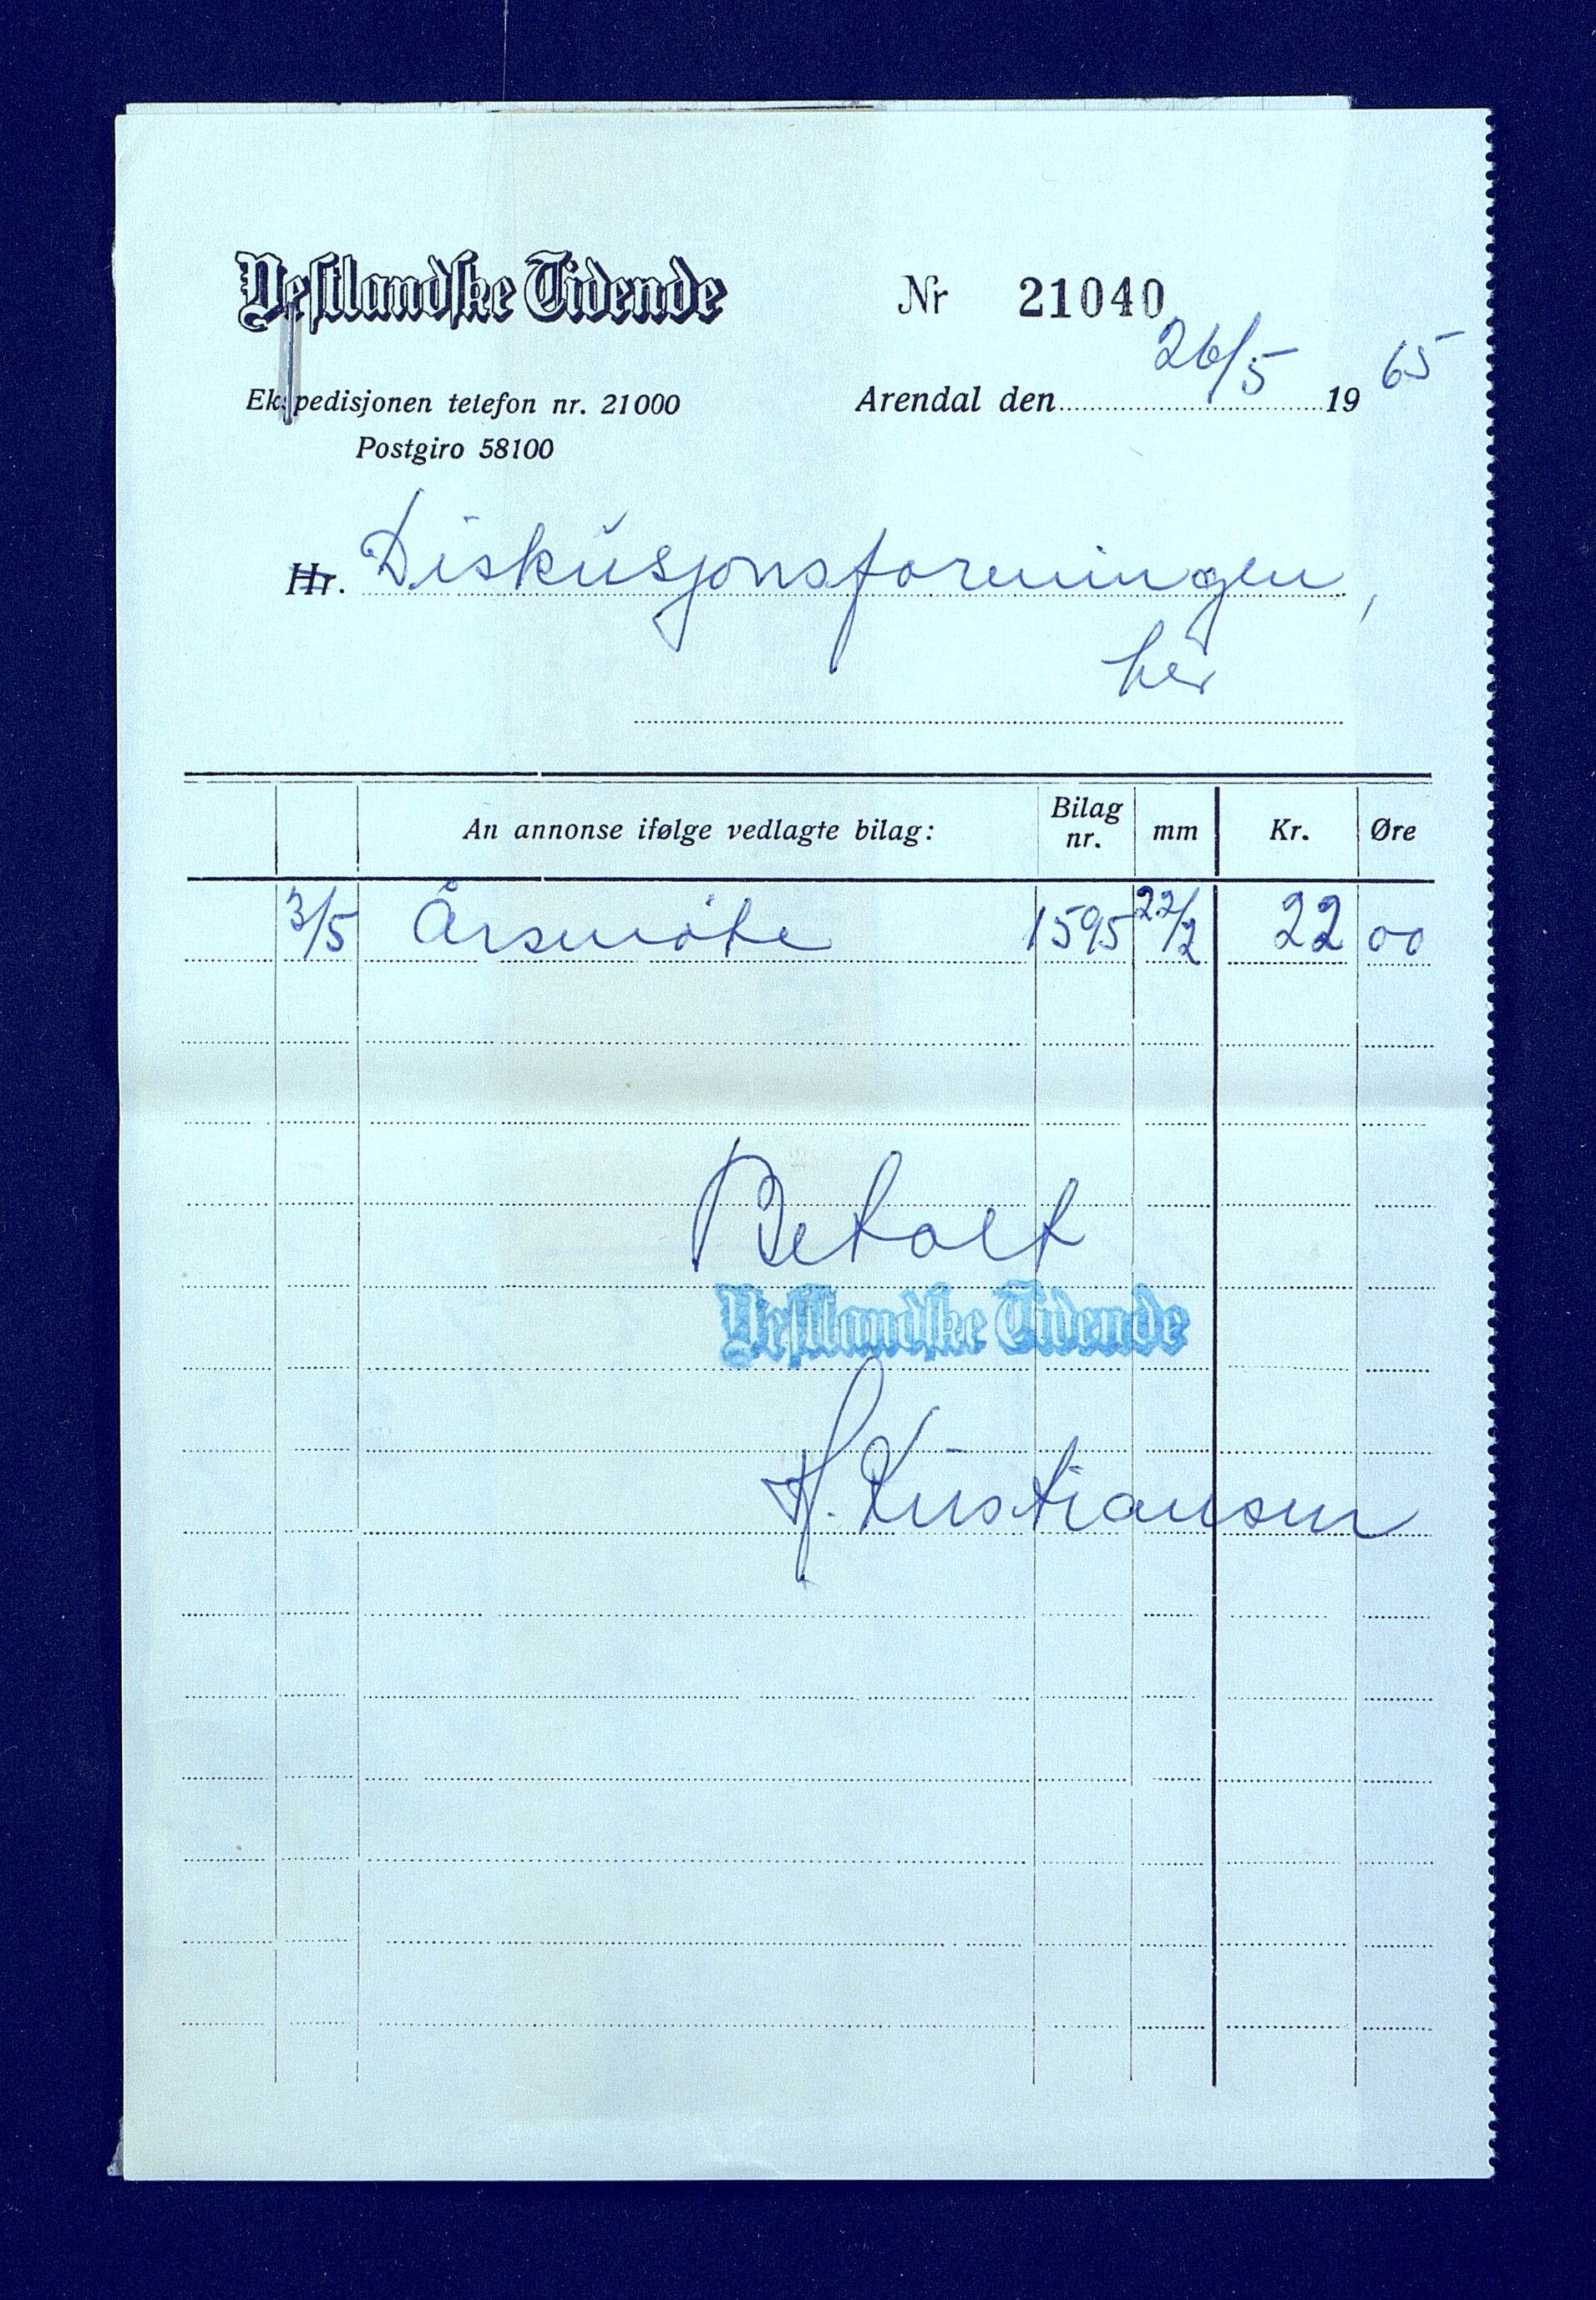 Vestlandske Tidende
Nr 21040
Ekspedisjonen telefon nr. 21000
Arendal den 26/5 1965
Postgiro 58100
Hr. Diskusjonsforeningen,
her
An annonse ifølge vedlagte bilag: Bilag nr. mm Kr. Øre
3/5 Årsmøte 1595 22/2 22 00
Betalt
Vestlandske Tidende
H. Kristiansen